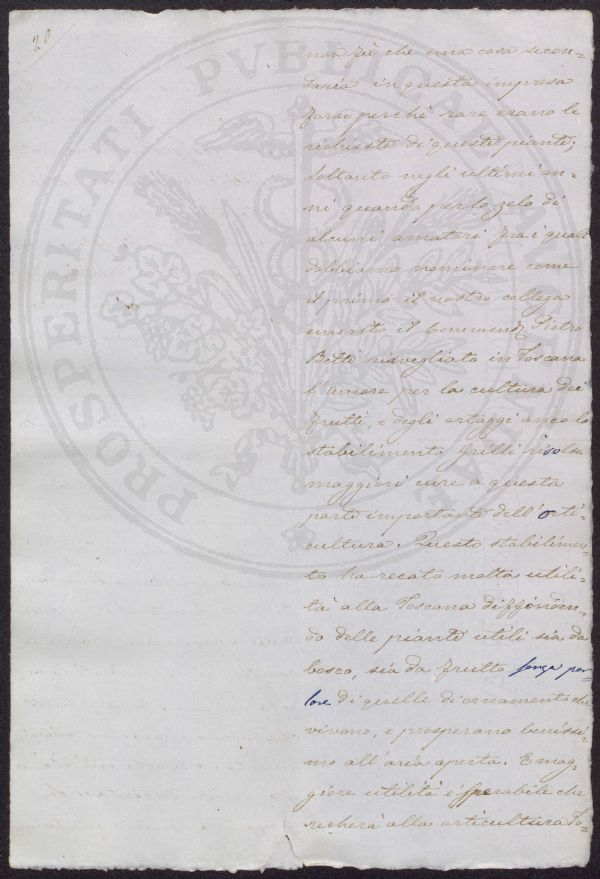 20
non fù che una cosa secon=
daria in questa impresa
forse perchè rare erano le
richieste di queste piante;
soltanto negli ultimi an=
ni quando per lo zelo di
alcuni amatori fra i quali
dobbiamo nominare come
il primo il nostro collega
emerito il Commend. Pietro
Betti risvegliato in Toscana
l'amore per la cultura dei
frutti, e degli ortaggi anco lo
stabilimento Grilli rivolse
maggiori cure a questa
parte importante dell'orti=
cultura. Questo stabilimen=
to ha recato molta utili=
tà alla Toscana diffonden=
do delle piante utili sia da
bosco, sia da frutto senza par=
lare di quelle di ornamento che
vivono, e prosperano benissi=
mo all'aria aperta. E mag=
giore utilità è sperabile che
recherà alla orticultura To=
PROSPERITATI PVBLICAE AVGENDAE